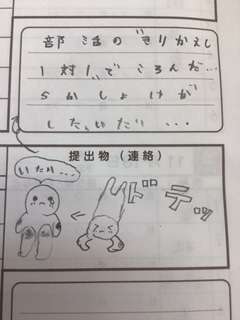 部活のきりかえし
1対1でころんだ…
5かしょけが
した。いたい…
提出物（連絡）
いたい…
ドテッ